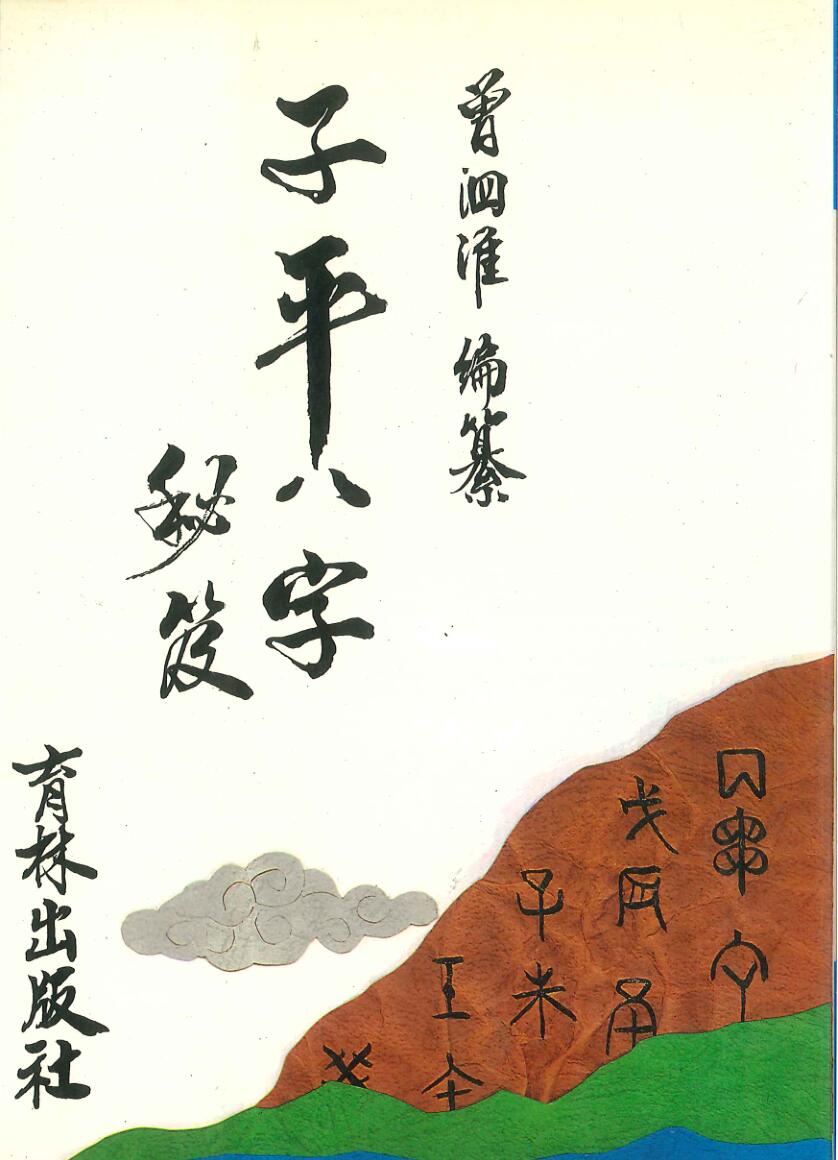 曾泗淮 編纂
子平八字
秘笈
育林出版社
戊辰
子未